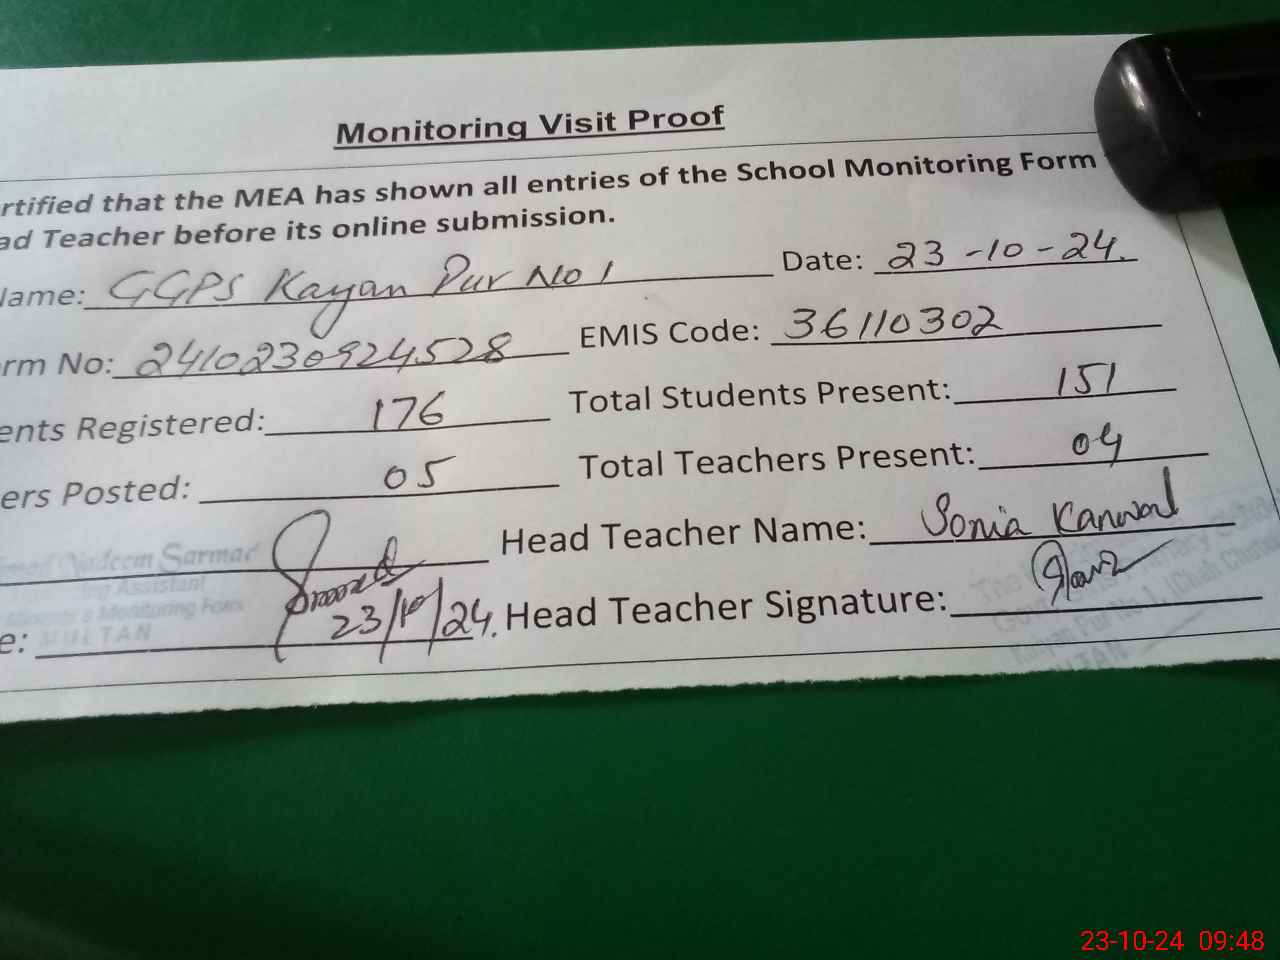 Monitoring Visit Proof
rtified that the MEA has shown all entries of the School Monitoring Form
ad Teacher before its online submission.
Name: GGPS Kayan Pur No 1 Date: 23-10-24.
rm No: 2410230924528 EMIS Code: 36110302
ents Registered: 176 Total Students Present: 151
ers Posted: 05 Total Teachers Present: 04
Nadeem Sarmad Head Teacher Name: Sonia Kanwal
ing Assistant
Monitoring Force
e: MULTAN 23/10/24. Head Teacher Signature:
23-10-24 09:48